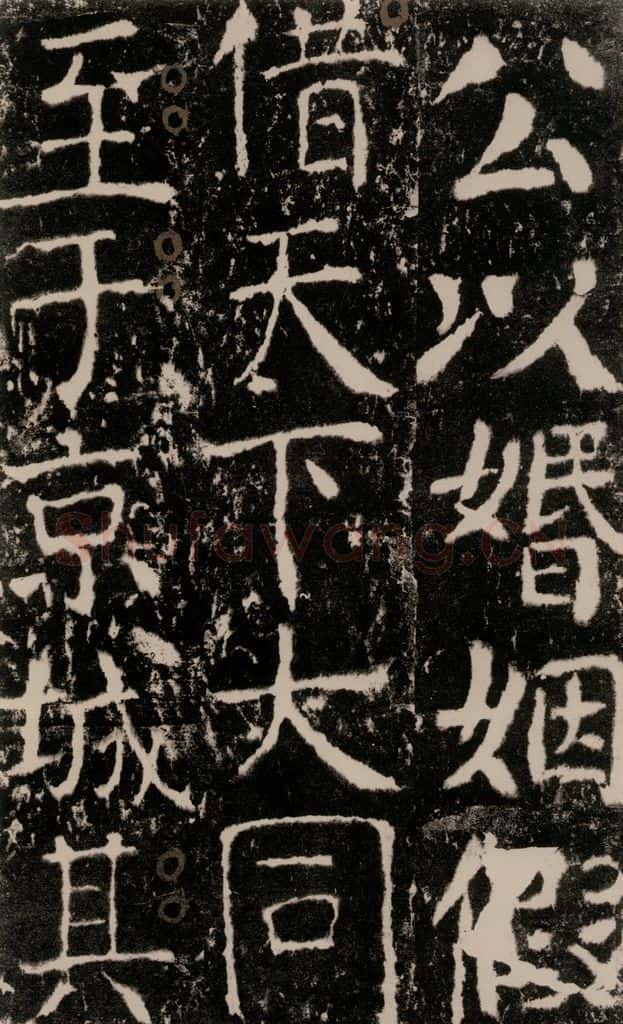 公以婚姻假
借天下大同
至于京城其
Shufawang.CN